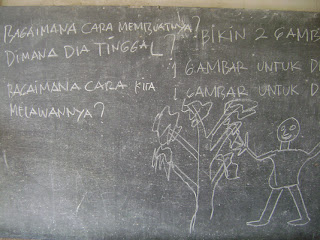 BAGAIMANA CARA MEMBUATNYA?
DIMANA DIA TINGGAL?
BAGAIMANA CARA KITA
MELAWANNYA?
BIKIN 2 GAMB
1 GAMBAR UNTUK D
1 GAMBAR UNTUK D